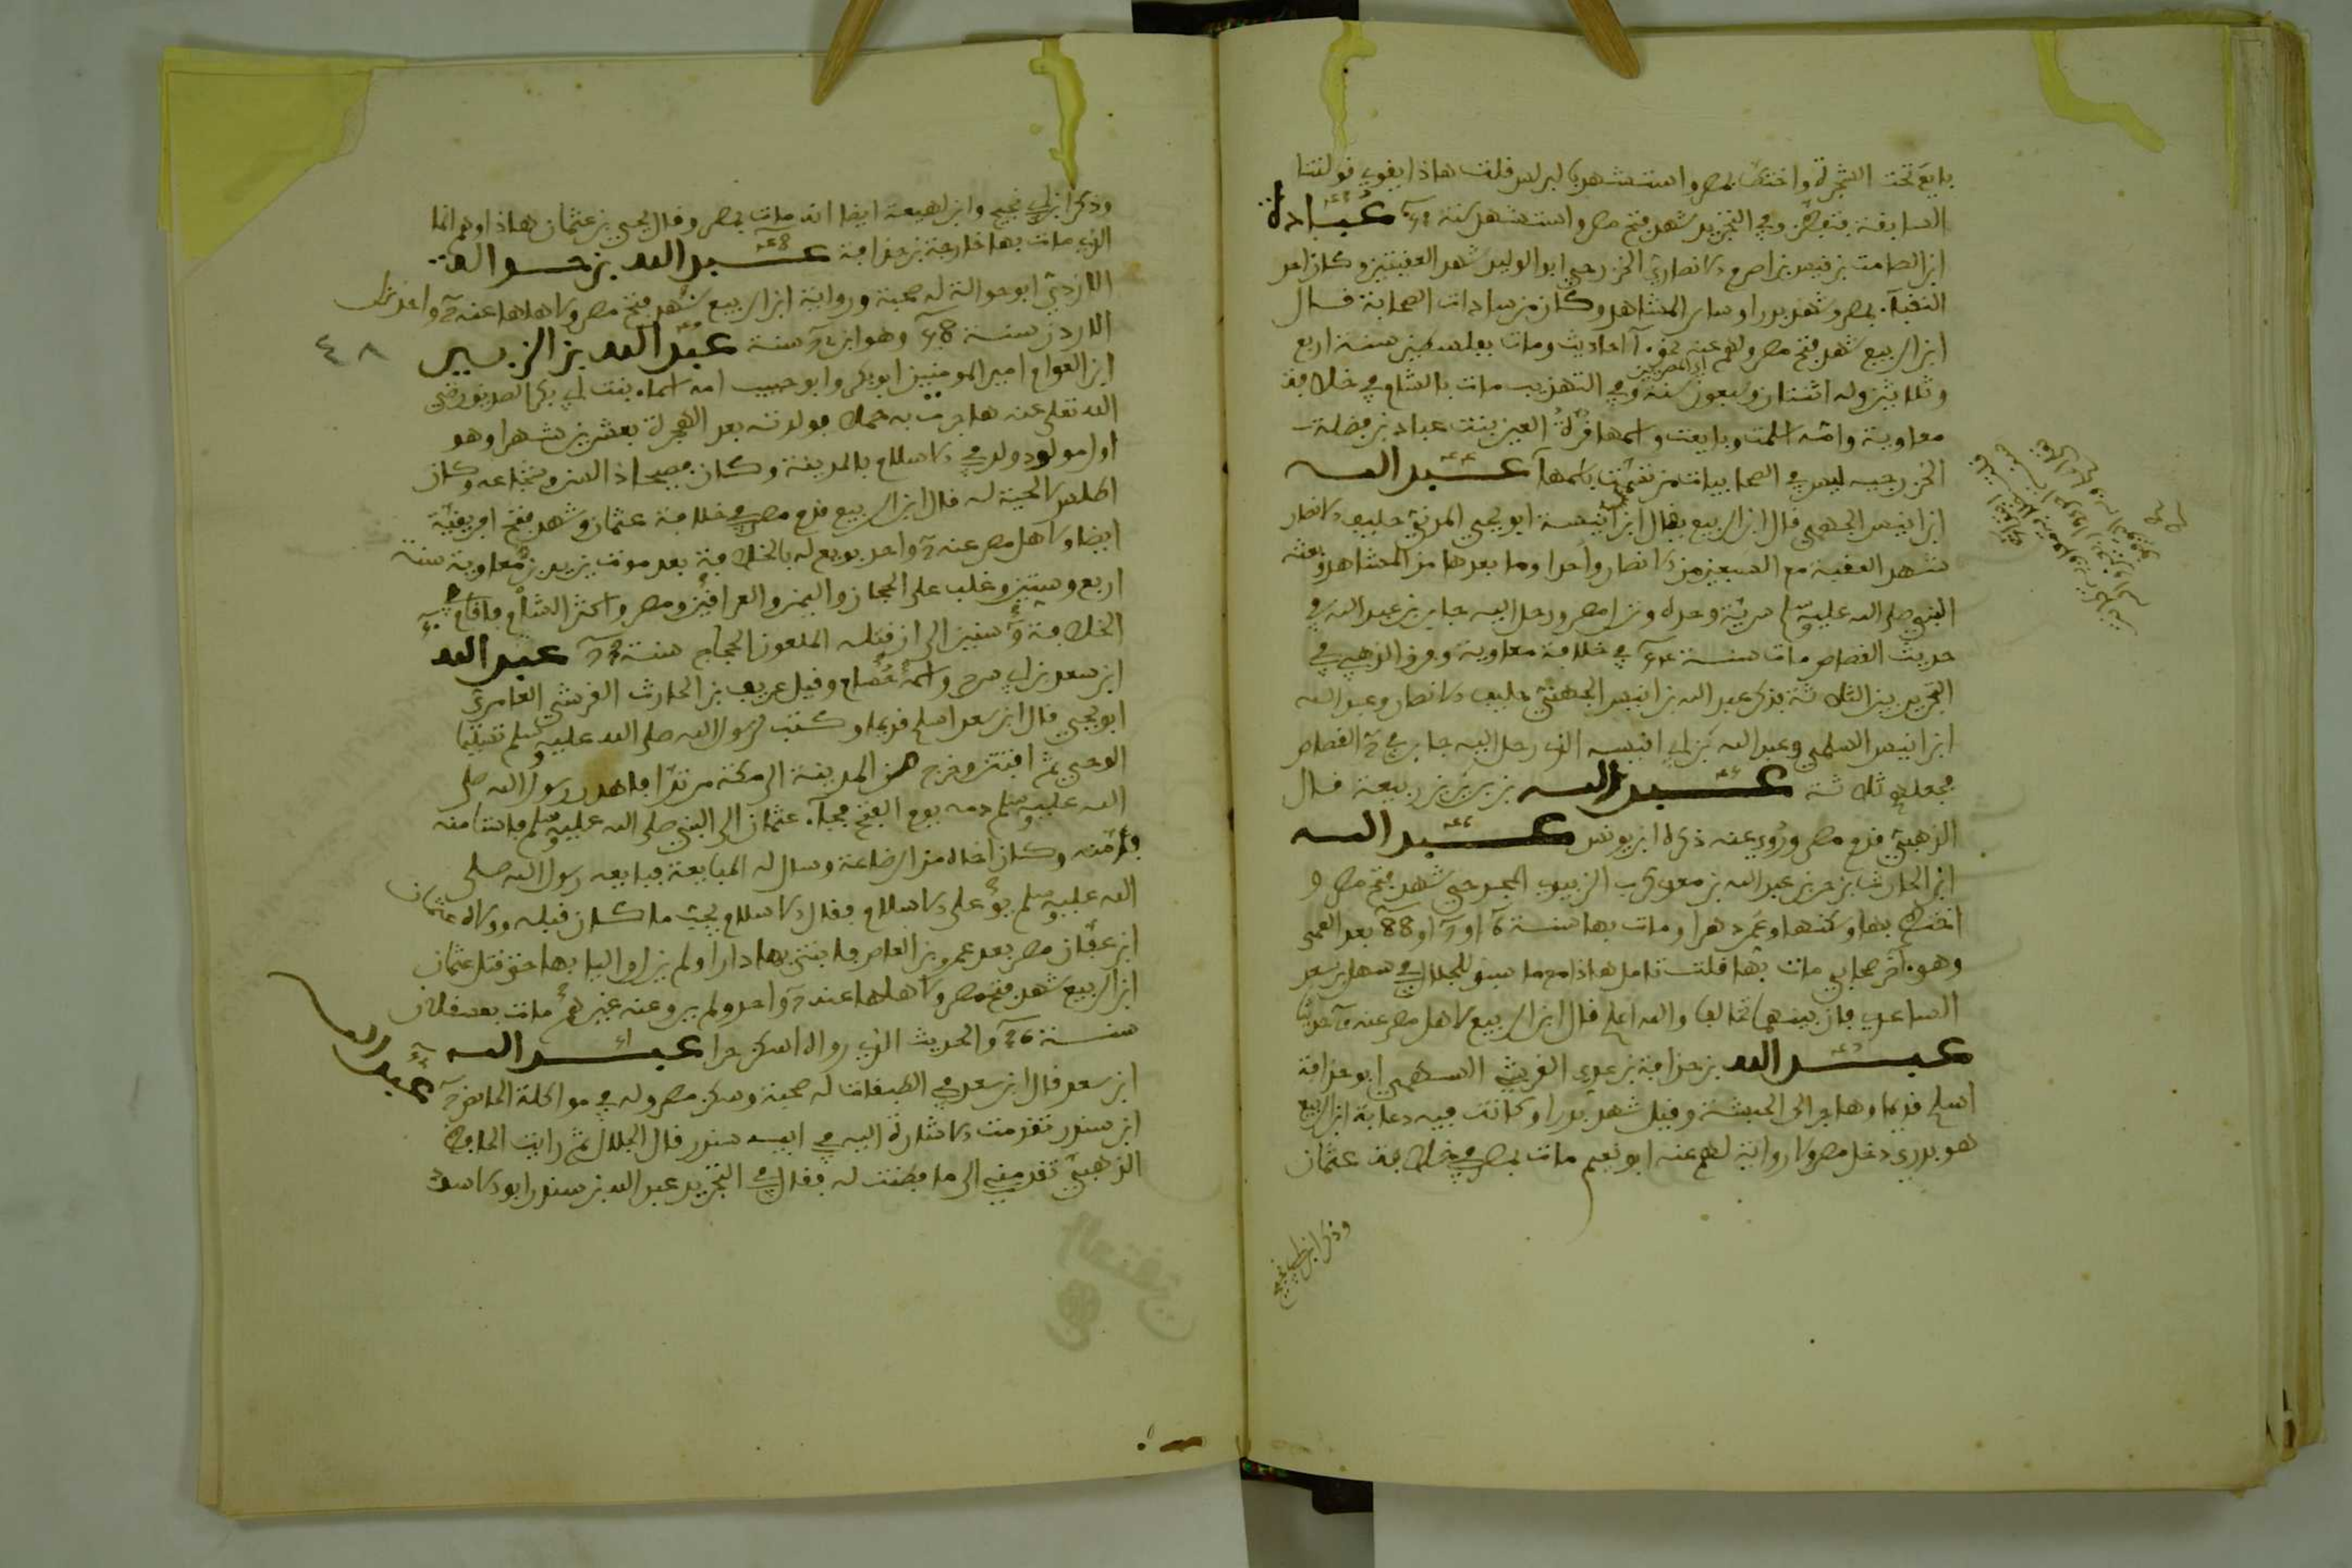 بايع تحت الشجرة واختط بمصر واستشهد بالبرلس قلت هاذا يقوي قولتنا
السابقة بتبصر وفي التجريد شهد فتح مصر واستشهد سنة عبادة
ابن الصامت بن قيس بن اصرم الانصاري الخزرجي ابو الوليد شهد العقبتين وكان احد
النقباء بمصر وشهد بدرا وساير المشاهد وكان من سادات الصحابة قال
ابن الربيع شهد فتح مصر ولهم عنه نحو احاديث ومات بفلسطين سنة اربع
وثلاثين وله اثنتان وسبعون سنة وفي التهذيب مات بالشام في خلافة
معاوية وامه اسلمت وبايعت واسمها قرة العين بنت عباد بن فضلة
الخزرجية ليس في الصحابيات من تسمت باسمها عبد الله
ابن انيس الجهمي قال ابن الربيع يقال ابن انيسة ابو يحيى المدني حليف الانصار
شهد العقبة مع السبعين من الانصار واحدا وما بعدها من المشاهد وبعثه
النبي صلى الله عليه وسلم سرية وحده ونزل مصر ورحل اليه جابر بن عبد الله في
حديث القصاص مات سنة في خلافة معاوية وفرق الذهبي في
التجريد بين الثلاثة فذكر عبد الله بن انيس الجهني حليف الانصار وعبد الله
ابن انيس السلمي وعبد الله بن ابي انيسة الذي رحل اليه جابر في القصاص
فجعلهم ثلاثة عبد الله بن بربر بن ربيعة قال
الذهبي قدم مصر وروي عنه ذكره ابن يونس عبد الله
ابن الحارث بن جزء بن عبد الله بن معدي كرب الزبيدي شهد فتح مصر و
اختط بها وسكنها وعمر دهرا ومات بها سنة 6 او 7 او 88 بعد العمى
وهو آخر صحابي مات بها قلت تامل هاذا مع ما سبق للجلال في سهل بن سعد
الساعدي فان بينهما تخالفا والله اعلم قال ابن الربيع لاهل مصر عنه حديثا
عبد الله بن حذافة بن عدي القرشي السهمي ابو حذافة
اسلم قديما وهاجر الى الحبشة وقيل شهد بدرا وكانت فيه دعابة ابن الربيع
هو بدري دخل مصر ولا رواية لهم عنه ابو نعيم مات بمصر في خلافة عثمان
وذكر ابن ابي نجيح
وذكر ابن ابي نجيح وابن لهيعة ايضا انه مات بمصر وقال يحيى بن عثمان هاذا وهم انما
الذي مات بها خارجة بن حذافة عبد الله بن حوالة
الازدي ابو حوالة له صحبة ورواية ابن الربيع شهد فتح مصر ولاهلها عنه واحد نزل
الاردن سنة 58 وهو ابن سنة عبد الله بن الزبير
٤٨
ابن العوام امير المومنين ابو بكر وابو حبيب امه اسماء بنت ابي بكر الصديق رضي
الله تعلى عنه هاجرت به حملا فولدته بعد الهجرة بعشرين شهرا وهو
اول مولود ولد في الاسلام بالمدينة وكان فصيحا ذا لسن وشجاعه وكان
اطلس لا لحية له قال ابن الربيع قدم مصر في خلافة عثمان وشهد فتح افريقية
ايضا ولاهل مصر عنه واحد بويع له بالخلافة بعد موت يزيد بن معاوية سنة
اربع وستين وغلب على الحجاز واليمن والعراقين ومصر واكثر الشام واقام في
الخلافة سنين الى ان قتله الملعون الحجاج سنة عبد الله
ابن سعد بن ابي سرح واسمه حسام وقيل عريف بن الحارث القرشي العامري
ابو يحيى قال ابن سعد اسلم قديما وكتب لرسول الله صلى الله عليه وسلم
الوحي ثم افتتن وخرج من المدينة الى مكة مرتدا فاهدر رسول الله صلى
الله عليه وسلم دمه يوم الفتح فجاء عثمان الى النبي صلى الله عليه وسلم فاستامنه
فامنه وكان اخاه من الرضاعة وسال له المبايعة فبايعه رسول الله صلى
الله عليه وسلم على الاسلام وقال الاسلام يجب ما كان قبله وولاه عثمان
ابن عفان مصر بعد عمرو بن العاص فابتنى بها دارا ولم يزل واليا بها حتى قتل عثمان
ابن الربيع شهد فتح مصر ولاهلها عنه واحد ولم يرو عنه غيرهم مات بعسقلان
سنة والحديث الذي رواه اسكن حرا عبد الله
عبد الله
ابن سعد قال ابن سعد في الطبقات له صحبة وسكن مصر وله في مواكلة الحايض
ابن سندر تقدمت الاشارة اليه في ابيه سندر قال الجلال ثم رايت الحافظ
الذهبي تقدمني الى ما فطنت له فقال في التجريد عبد الله بن سندر ابو الاسود